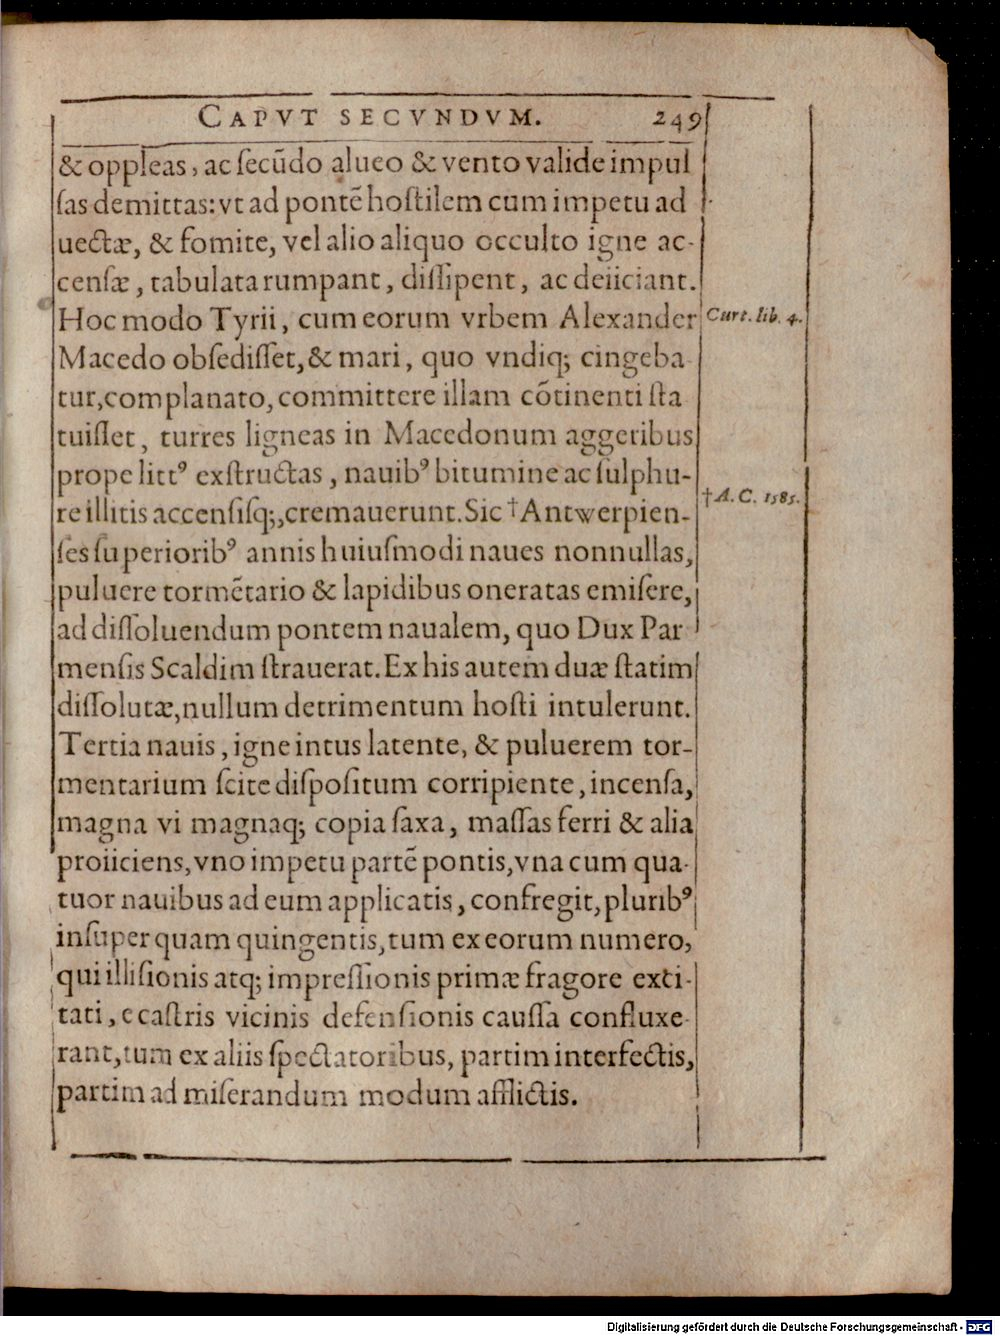 CAPVT SECVNDVM. 249
& oppleas, ac ſecūdo alueo & vento valide impul
ſas demittas: vt ad pontē hoſtilem cum impetu ad
uectæ, & fomite, vel alio aliquo occulto igne ac-
cenſæ, tabulata rumpant, diſſipent, ac deiiciant.
Hoc modo Tyrii, cum eorum vrbem Alexander
Curt. lib. 4.
Macedo obſediſſet, & mari, quo vndiq; cingeba
tur, complanato, committere illam cōtinenti ſta
tuiſſet, turres ligneas in Macedonum aggeribus
prope littꝰ exſtructas, nauibꝰ bitumine ac ſulphu-
re illitis accenſiſq;, cremauerunt. Sic †Antwerpien-
† A. C. 1585.
ſes ſuperioribꝰ annis huiuſmodi naues nonnullas,
puluere tormētario & lapidibus oneratas emiſere,
ad diſſoluendum pontem naualem, quo Dux Par
menſis Scaldim ſtrauerat. Ex his autem duæ ſtatim
diſſolutæ, nullum detrimentum hoſti intulerunt.
Tertia nauis, igne intus latente, & puluerem tor-
mentarium ſcite diſpoſitum corripiente, incenſa,
magna vi magnaq; copia ſaxa, maſſas ferri & alia
proiiciens, vno impetu partē pontis, vna cum qua-
tuor nauibus ad eum applicatis, confregit, pluribꝰ
inſuper quam quingentis, tum ex eorum numero,
qui illiſionis atq; impreſſionis primæ fragore exci-
tati, e caſtris vicinis defenſionis cauſſa confluxe-
rant, tum ex aliis ſpectatoribus, partim interfectis,
partim ad miſerandum modum afflictis.
Digitalisierung gefördert durch die Deutsche Forschungsgemeinschaft - DFG